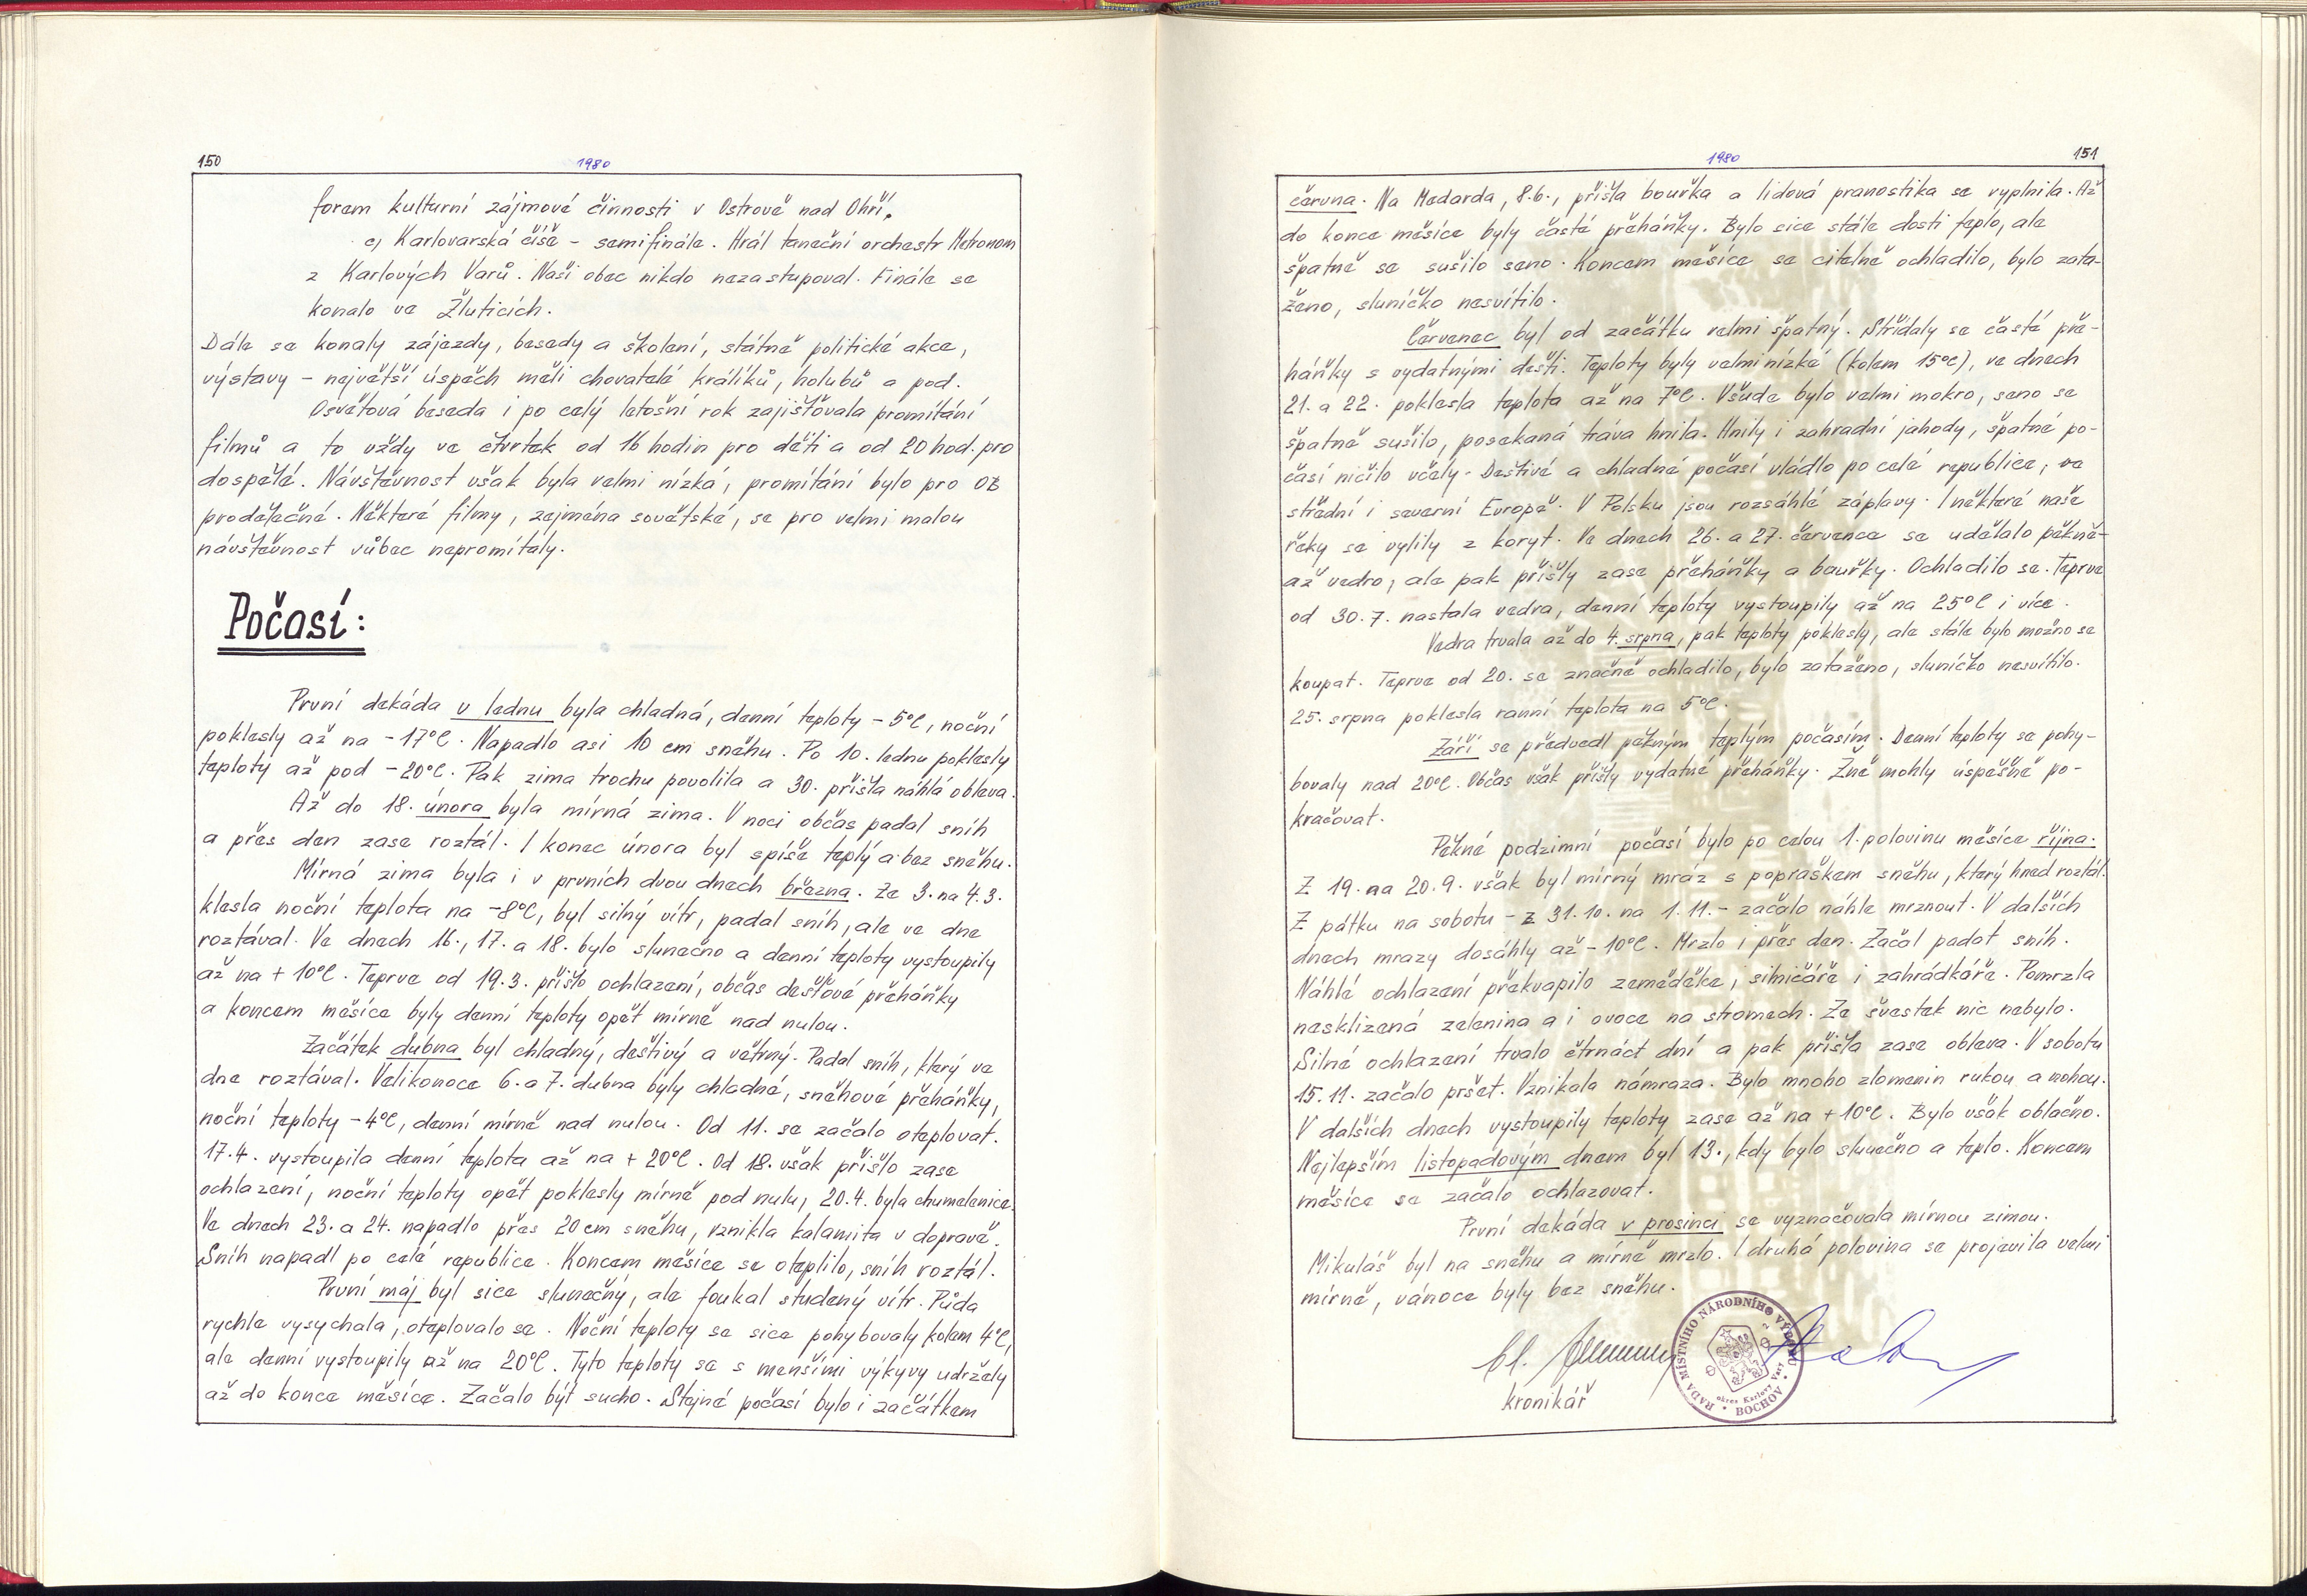 150
1980
forem kulturní zájmové činnosti v Ostrově nad Ohří.
c, Karlovarská číše - semifinále. Hrál taneční orchestr Metronom
z Karlových Varů. Naši obec nikdo nezastupoval. Finále se
konalo ve Žluticích.
Dále se konaly zájezdy, besedy a školení, státně politické akce,
výstavy - největší úspěch měli chovatelé králíků, holubů a pod.
Osvětová beseda i po celý letošní rok zajišťovala promítání
filmů a to vždy ve čtvrtek od 16 hodin pro děti a od 20 hod. pro
dospělé. Návštěvnost však byla velmi nízká, promítání bylo pro OB
prodělečné. Některé filmy, zejména sovětské, se pro velmi malou
návštěvnost vůbec nepromítaly.
Počasí:
První dekáda v lednu byla chladná, denní teploty -5°C, noční
poklesly až na -17°C. Napadlo asi 10 cm sněhu. Po 10. lednu poklesly
teploty až pod -20°C. Pak zima trochu povolila a 30. přišla náhlá obleva.
Až do 18. února byla mírná zima. V noci občas padal sníh
a přes den zase roztál. I konec února byl spíše teplý a bez sněhu.
Mírná zima byla i v prvních dvou dnech března. Ze 3. na 4.3.
klesla noční teplota na -8°C, byl silný vítr, padal sníh, ale ve dne
roztával. Ve dnech 16., 17. a 18. bylo slunečno a denní teploty vystoupily
až na + 10°C. Teprve od 19.3. přišlo ochlazení, občas dešťové přeháňky
a koncem měsíce byly denní teploty opět mírně nad nulou.
Začátek dubna byl chladný, deštivý a větrný. Padal sníh, který ve
dne roztával. Velikonoce 6. a 7. dubna byly chladné, sněhové přeháňky,
noční teploty -4°C, denní mírně nad nulou. Od 11. se začalo oteplovat.
17.4. vystoupila denní teplota až na + 20°C. Od 18. však přišlo zase
ochlazení, noční teploty opět poklesly mírně pod nulu, 20.4. byla chumelenice.
Ve dnech 23. a 24. napadlo přes 20 cm sněhu, vznikla kalamita v dopravě.
Sníh napadl po celé republice. Koncem měsíce se oteplilo, sníh roztál.
První máj byl sice slunečný, ale foukal studený vítr. Půda
rychle vysychala, oteplovalo se. Noční teploty se sice pohybovaly kolem 4°C,
ale denní vystoupily až na 20°C. Tyto teploty se s menšími výkyvy udržely
až do konce měsíce. Začalo být sucho. Stejné počasí bylo i začátkem
1980
151
června. Na Medarda, 8.6., přišla bouřka a lidová pranostika se vyplnila. Až
do konce měsíce byly časté přeháňky. Bylo sice stále dosti teplo, ale
špatně se sušilo seno. Koncem měsíce se citelně ochladilo, bylo zata-
ženo, sluníčko nesvítilo.
Červenec byl od začátku velmi špatný. Střídaly se časté pře-
háňky s vydatnými dešti. Teploty byly velmi nízké (kolem 15°C), ve dnech
21. a 22. poklesla teplota až na 7°C. Všude bylo velmi mokro, seno se
špatně sušilo, posekaná tráva hnila. Hnily i zahradní jahody, špatné po-
časí ničilo včely. Deštivé a chladné počasí vládlo po celé republice, ve
střední i severní Evropě. V Polsku jsou rozsáhlé záplavy. I některé naše
řeky se vylily z koryt. Ve dnech 26. a 27. července se udělalo pěkně -
až vedro, ale pak přišly zase přeháňky a bouřky. Ochladilo se. Teprve
od 30.7. nastala vedra, denní teploty vystoupily až na 25°C i více.
Vedra trvala až do 4. srpna, pak teploty poklesly, ale stále bylo možno se
koupat. Teprve od 20. se značně ochladilo, bylo zataženo, sluníčko nesvítilo.
25. srpna poklesla ranní teplota na 5°C.
Září se předvedl pěkným, teplým počasím. Denní teploty se pohy-
bovaly nad 20°C. Občas však přišly vydatné přeháňky. Žně mohly úspěšně po-
kračovat.
Pěkné podzimní počasí bylo po celou 1. polovinu měsíce října.
Z 19. na 20.9. však byl mírný mráz s popraškem sněhu, který hned roztál.
Z pátku na sobotu - z 31.10. na 1.11. - začalo náhle mrznout. V dalších
dnech mrazy dosáhly až -10°C. Mrzlo i přes den. Začal padat sníh.
Náhlé ochlazení překvapilo zemědělce, silničáře i zahrádkáře. Pomrzla
nesklizená zelenina a i ovoce na stromech. Ze švestek nic nebylo.
Silné ochlazení trvalo čtrnáct dní a pak přišla zase obleva. V sobotu
15.11. začalo pršet. Vznikala námraza. Bylo mnoho zlomenin rukou a nohou.
V dalších dnech vystoupily teploty zase až na +10°C. Bylo však oblačno.
Nejlepším listopadovým dnem byl 13., kdy bylo slunečno a teplo. Koncem
měsíce se začalo ochlazovat.
První dekáda v prosinci se vyznačovala mírnou zimou.
Mikuláš byl na sněhu a mírně mrzlo. I druhá polovina se projevila velmi
mírně, vánoce byly bez sněhu.
kronikář
RADA MÍSTNÍHO NÁRODNÍHO VÝBORU
okres Karlovy Vary
BOCHOV